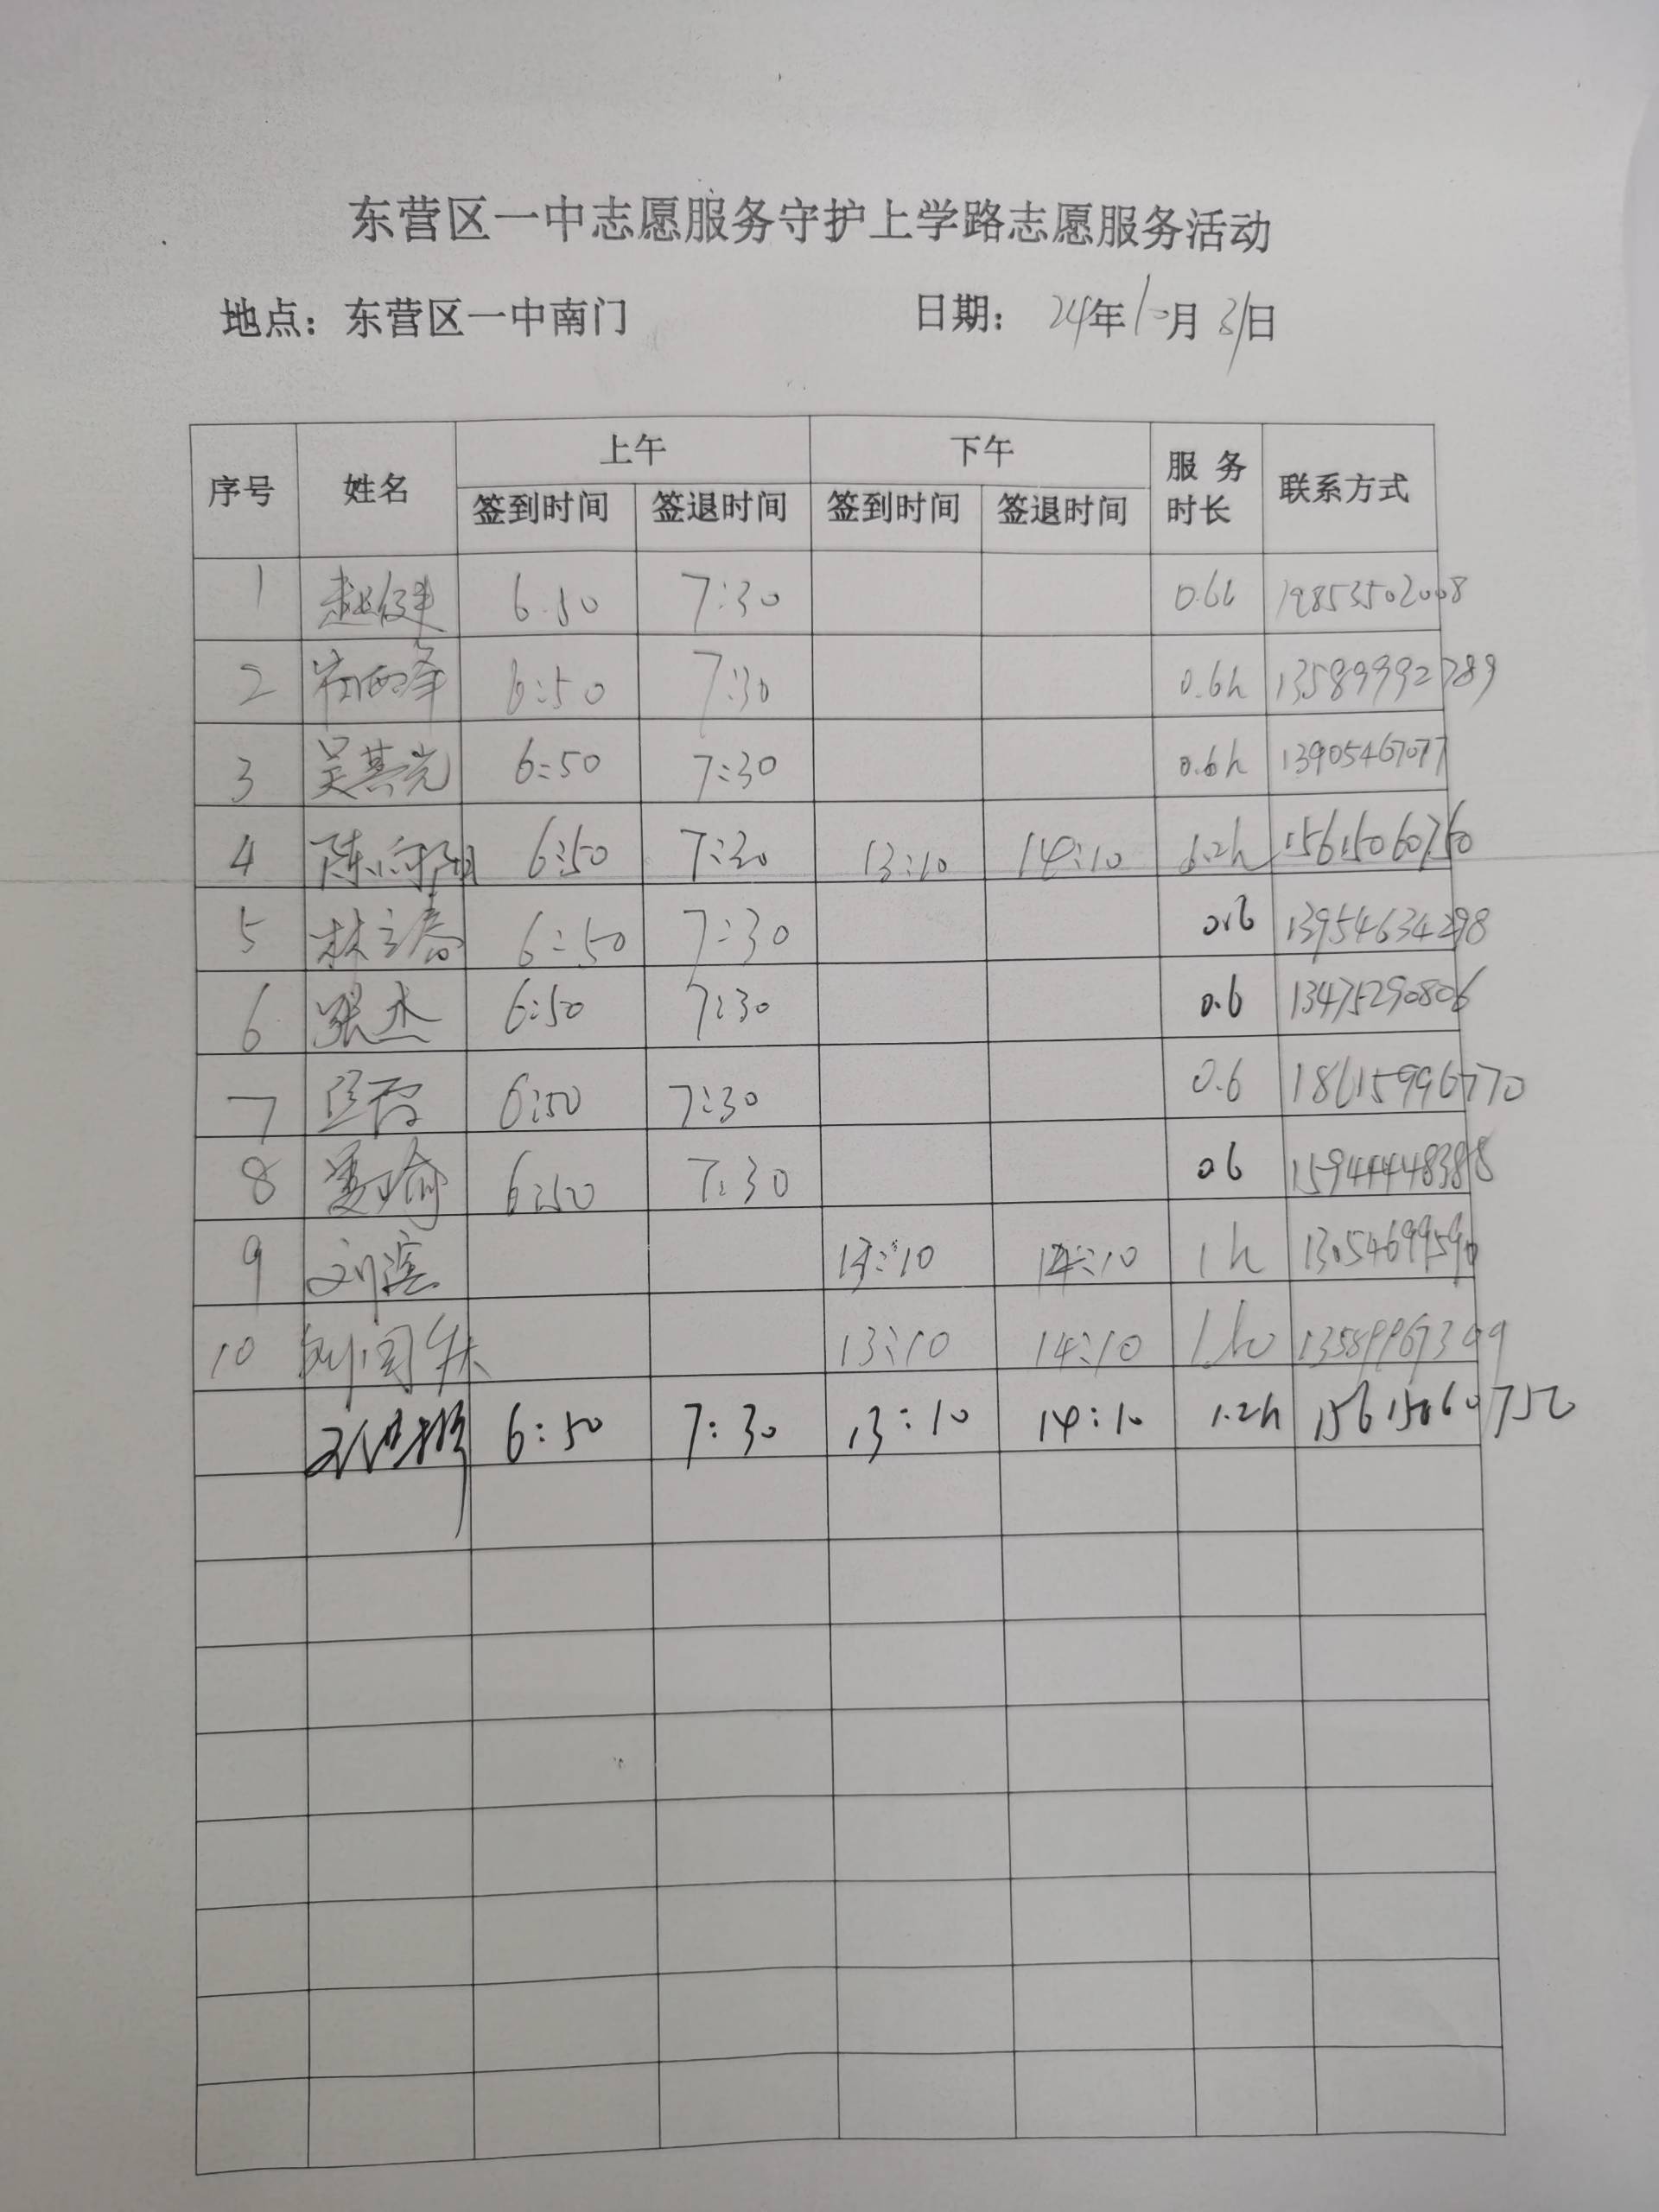 东营区一中志愿服务守护上学路志愿服务活动
地点：东营区一中南门 日期： 24年10月31日
序号 姓名 上午 下午 服务时长 联系方式
签到时间 签退时间 签到时间 签退时间
1 赵健 6:50 7:30 0.6h 19853502008
2 6:50 7:30 0.6h 13589992789
3 吴其光 6:50 7:30 0.6h 13905467077
4 陈向阳 6:50 7:30 13:10 14:10 15615060750
5 林立春 6:50 7:30 0.6 13954634298
6 张杰 6:50 7:30 0.6 13475290806
7 6:50 7:30 0.6 18615996770
8 6:50 7:30 0.6
9 刘滨 13:10 14:10 1h 13054699590
10 13:10 14:10 13589967399
6:50 7:30 13:10 14:10 1.2h 15615060750